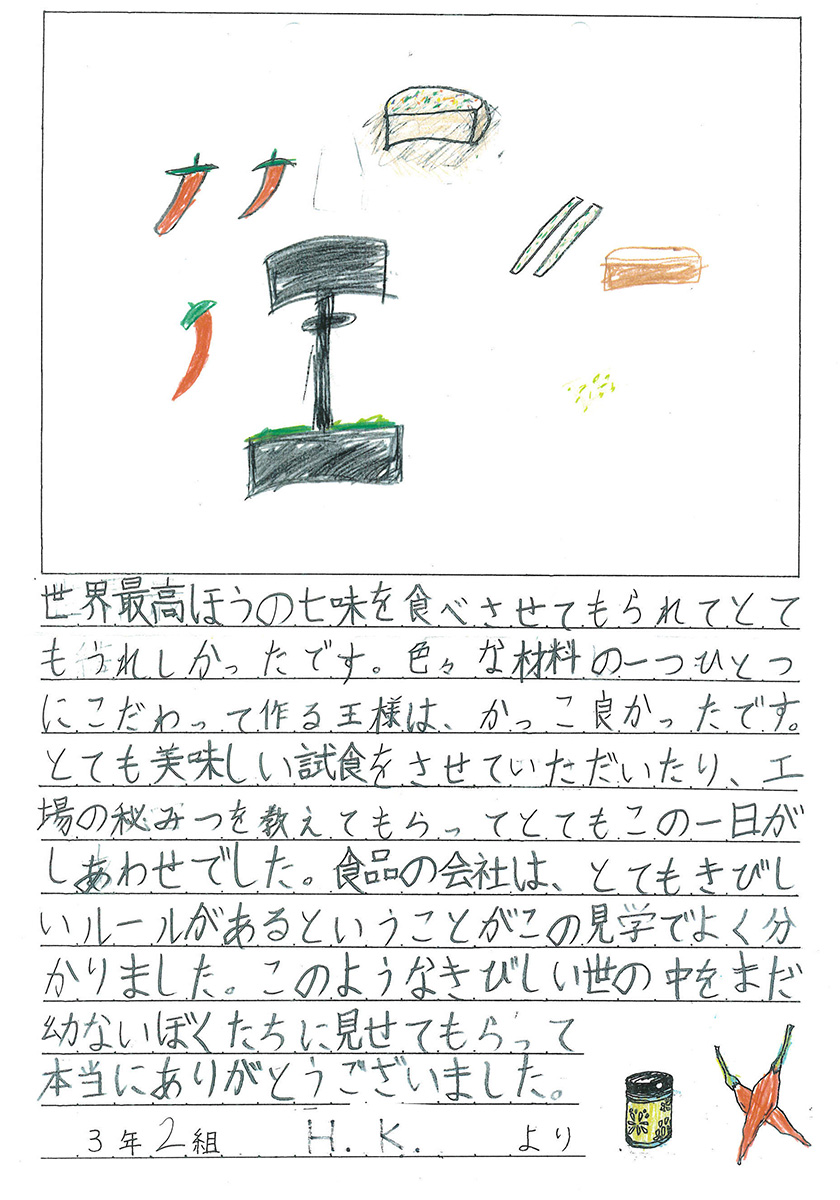 世界最高ほうの七味を食べさせてもられてとて
もうれしかったです。色々な材料の一つひとつ
にこだわって作る王様は、かっこ良かったです。
とても美味しい試食をさせていただいたり、工
場の秘みつを教えてもらってとてもこの一日が
しあわせでした。食品の会社は、とてもきびし
いルールがあるということがこの見学でよく分
かりました。このようなきびしい世の中をまだ
幼ないぼくたちに見せてもらって
本当にありがとうございました。
3年2組 H.K. より